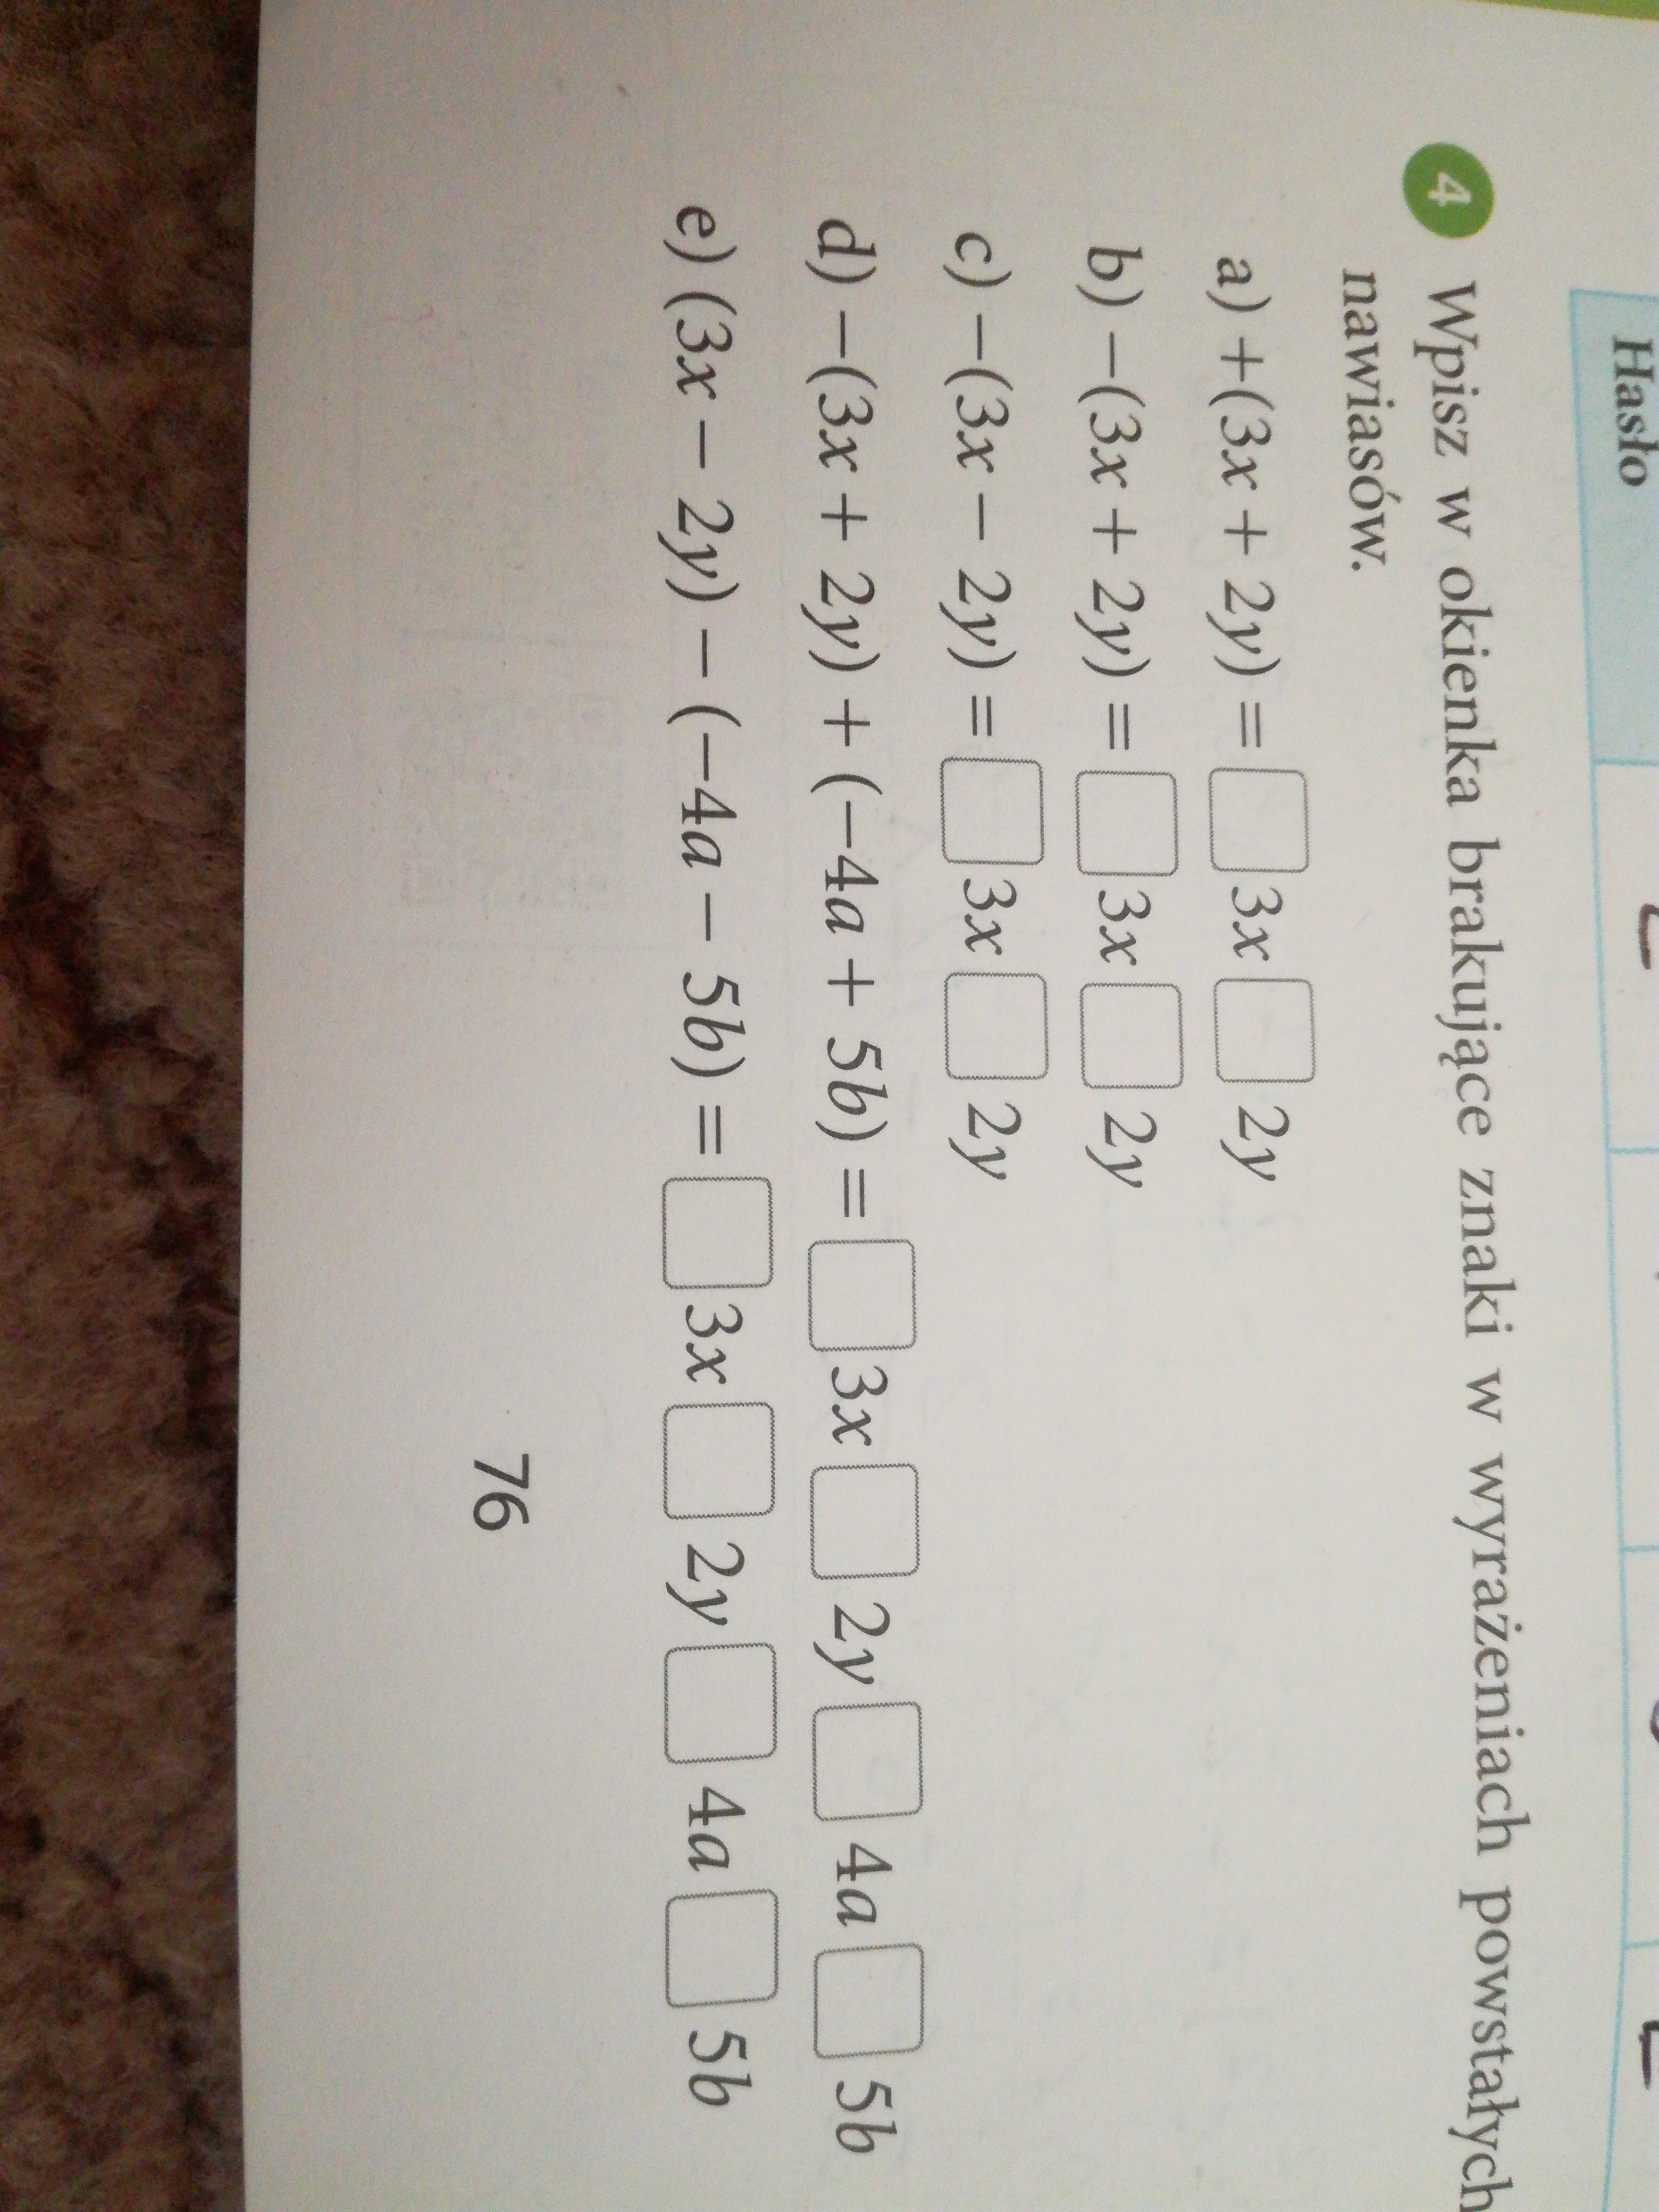 Hasło
4 Wpisz w okienka brakujące znaki w wyrażeniach powstałych
nawiasów.
a) +(3x + 2y) = □ 3x □ 2y
b) −(3x + 2y) = □ 3x □ 2y
c) −(3x − 2y) = □ 3x □ 2y
d) −(3x + 2y) + (−4a + 5b) = □ 3x □ 2y □ 4a □ 5b
e) (3x − 2y) − (−4a − 5b) = □ 3x □ 2y □ 4a □ 5b
76